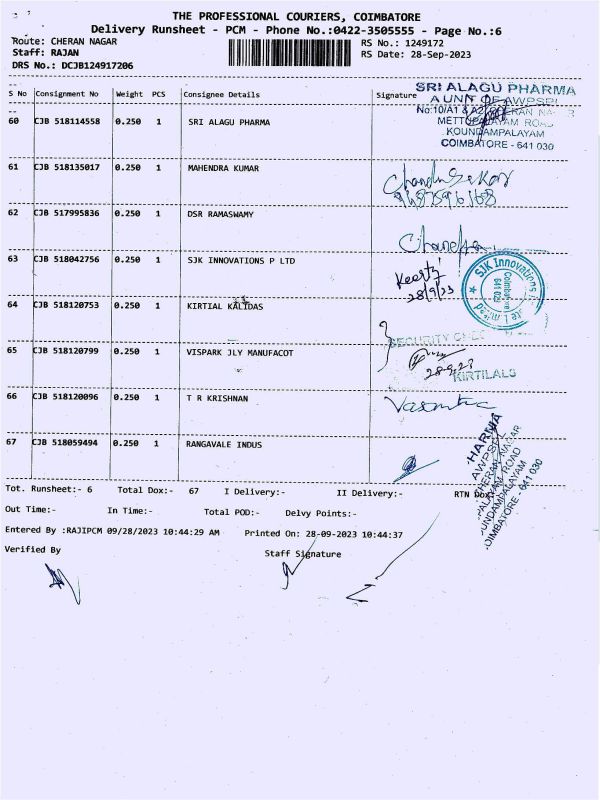 THE PROFESSIONAL COURIERS, COIMBATORE
Delivery Runsheet - PCM - Phone No.:0422-3505555 - Page No.:6
Route: CHERAN NAGAR RS No.: 1249172
Staff: RAJAN RS Date: 28-Sep-2023
DRS No.: DCJB124917206
S No Consignment No Weight PCS Consignee Details Signature
SRI ALAGU PHARMA
A UNIT OF AWPSPL
METTUPALAYAM ROAD
KOUNDAMPALAYAM
COIMBATORE - 641 030
60 CJB 518114558 0.250 1 SRI ALAGU PHARMA
61 CJB 518135017 0.250 1 MAHENDRA KUMAR
62 CJB 517995836 0.250 1 DSR RAMASWAMY
63 CJB 518042756 0.250 1 SJK INNOVATIONS P LTD
Keerthi
28/9/23
SJK Innovations
Coimbatore
641 029
64 CJB 518120753 0.250 1 KIRTIAL KALIDAS
SECURITY
65 CJB 518120799 0.250 1 VISPARK JLY MANUFACOT
28-9-23
KIRTILALS
66 CJB 518120096 0.250 1 T R KRISHNAN
67 CJB 518059494 0.250 1 RANGAVALE INDUS
HARMA
AWPSPL
CHERAN NAGAR
PALAYAM ROAD
OUNDAMPALAYAM
OIMBATORE - 641 030
Tot. Runsheet:- 6 Total Dox:- 67 I Delivery:- II Delivery:- RTN Dox
Out Time:- In Time:- Total POD:- Delvy Points:-
Entered By :RAJIPCM 09/28/2023 10:44:29 AM Printed On: 28-09-2023 10:44:37
Verified By Staff Signature